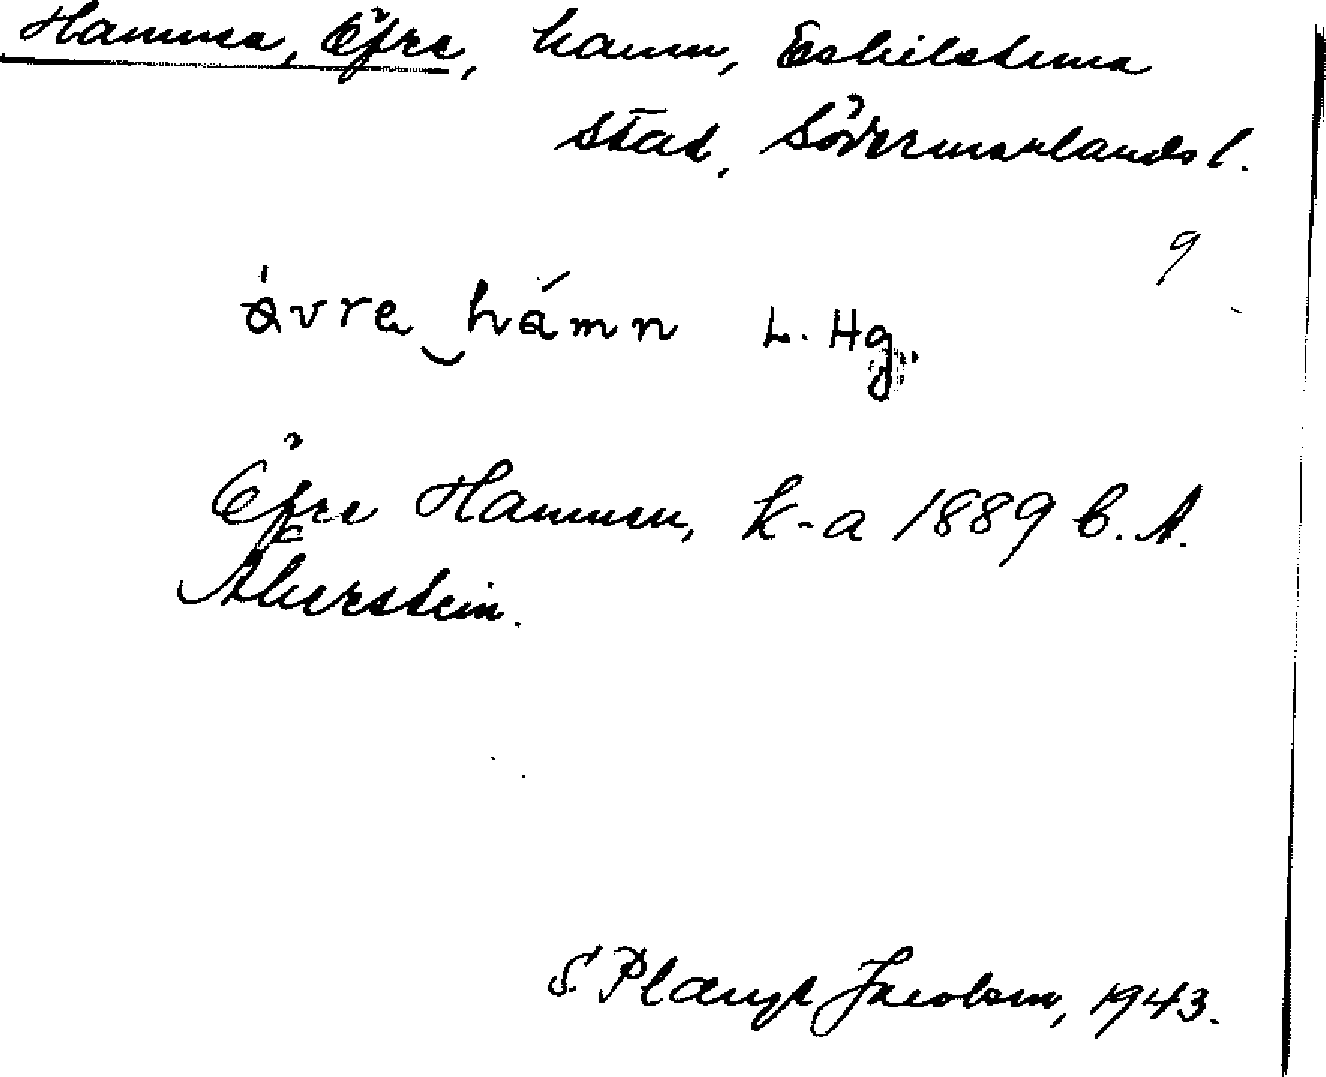 Hamnen, Öfre, hamn, Eskilstuna
stad, Södermanlands l.
9
ávre hámn L. Hg.
Öfre Hamnen, k-a 1889 C. A.
S. Plænge Jacobson, 1943.